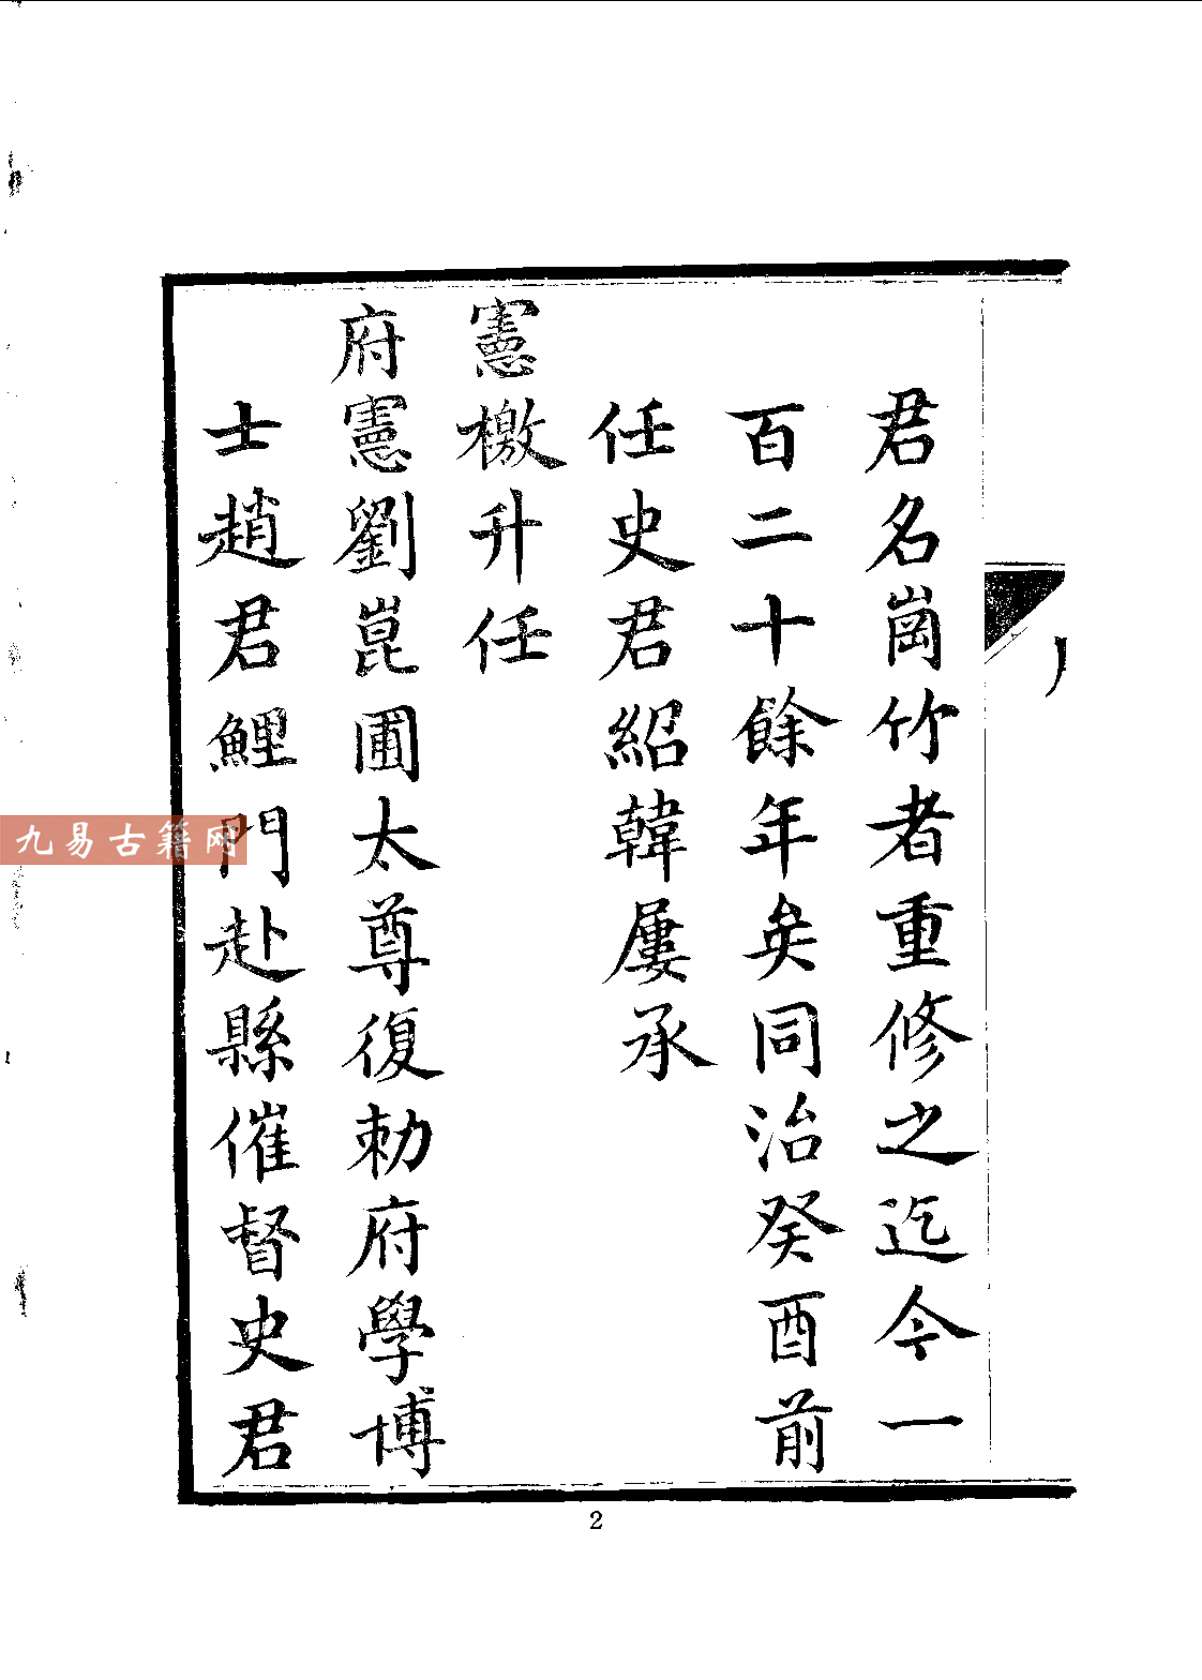 君名崗竹者重修之迄今一
百二十餘年矣同治癸酉前
任史君紹韓屢承
憲檄升任
府憲劉崑圃太尊復勅府學博
士趙君鯉門赴縣催督史君
九易古籍网
2